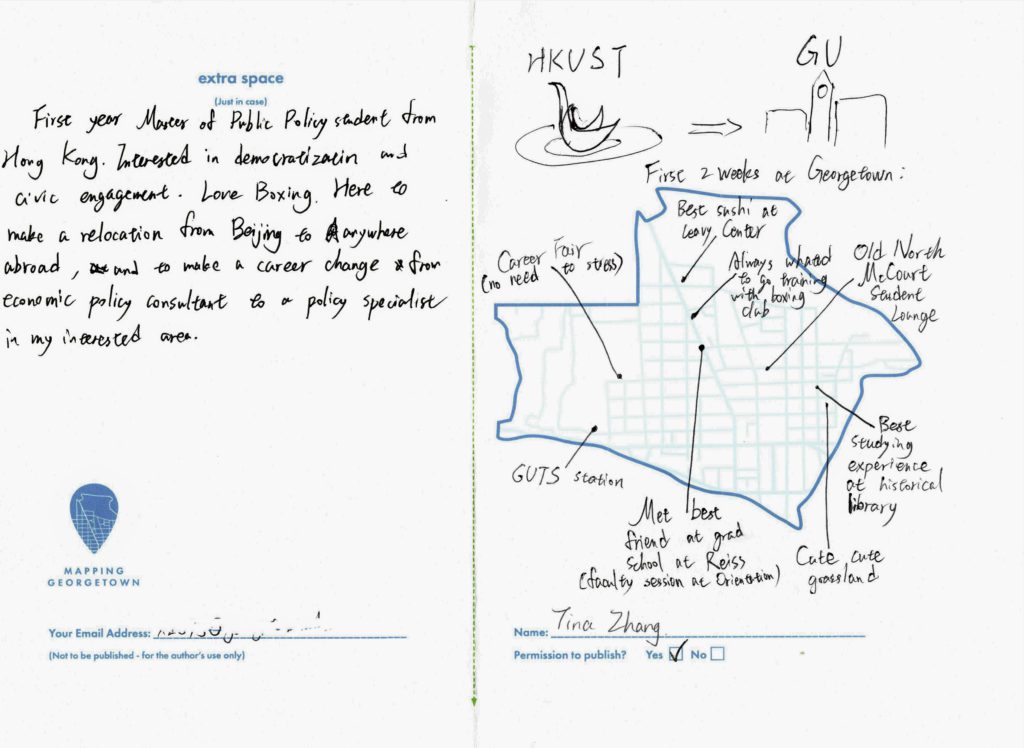 extra space
(Just in case)
First year Master of Public Policy student from
Hong Kong. Interested in democratizatin and
civic engagement. Love Boxing. Here to
make a relocation from Beijing to Aanywhere
abroad, and to make a career change from
economic policy consultant to a policy specialist
in my interested area.
MAPPING
GEORGETOWN
Your Email Address:
(Not to be published - for the author's use only)
HKUST
GU
First 2 weeks at Georgetown:
Best sushi at
Leavy Center
Career Fair
(no need to stress)
Always whated
to go training
with boxing
club
Old North
McCourt
Student
Lounge
GUTS station
Best
studying
experience
at historical
library
Met best
friend at grad
school at Reiss
(faculty session at Orientation)
Cute cute
grassland
Name: Tina Zhang
Permission to publish? Yes No